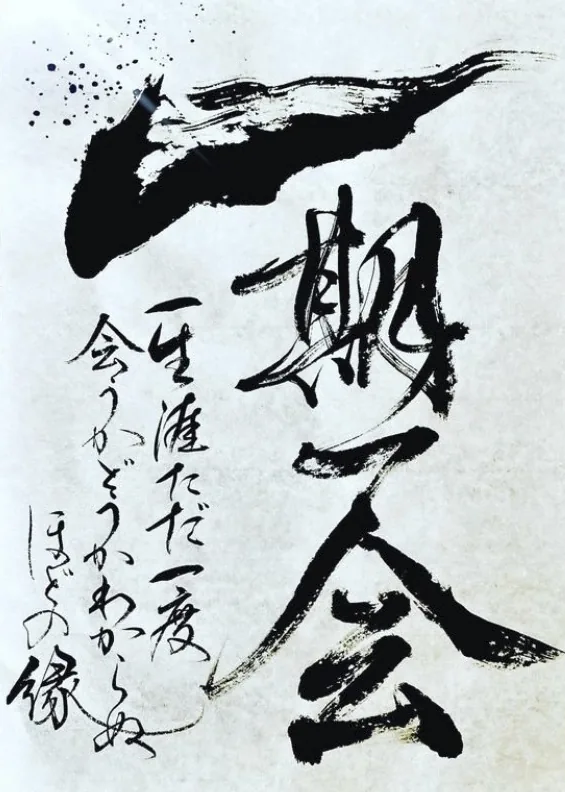 一期一会
一生涯ただ一度
会うかどうかわからぬ
ほどの縁